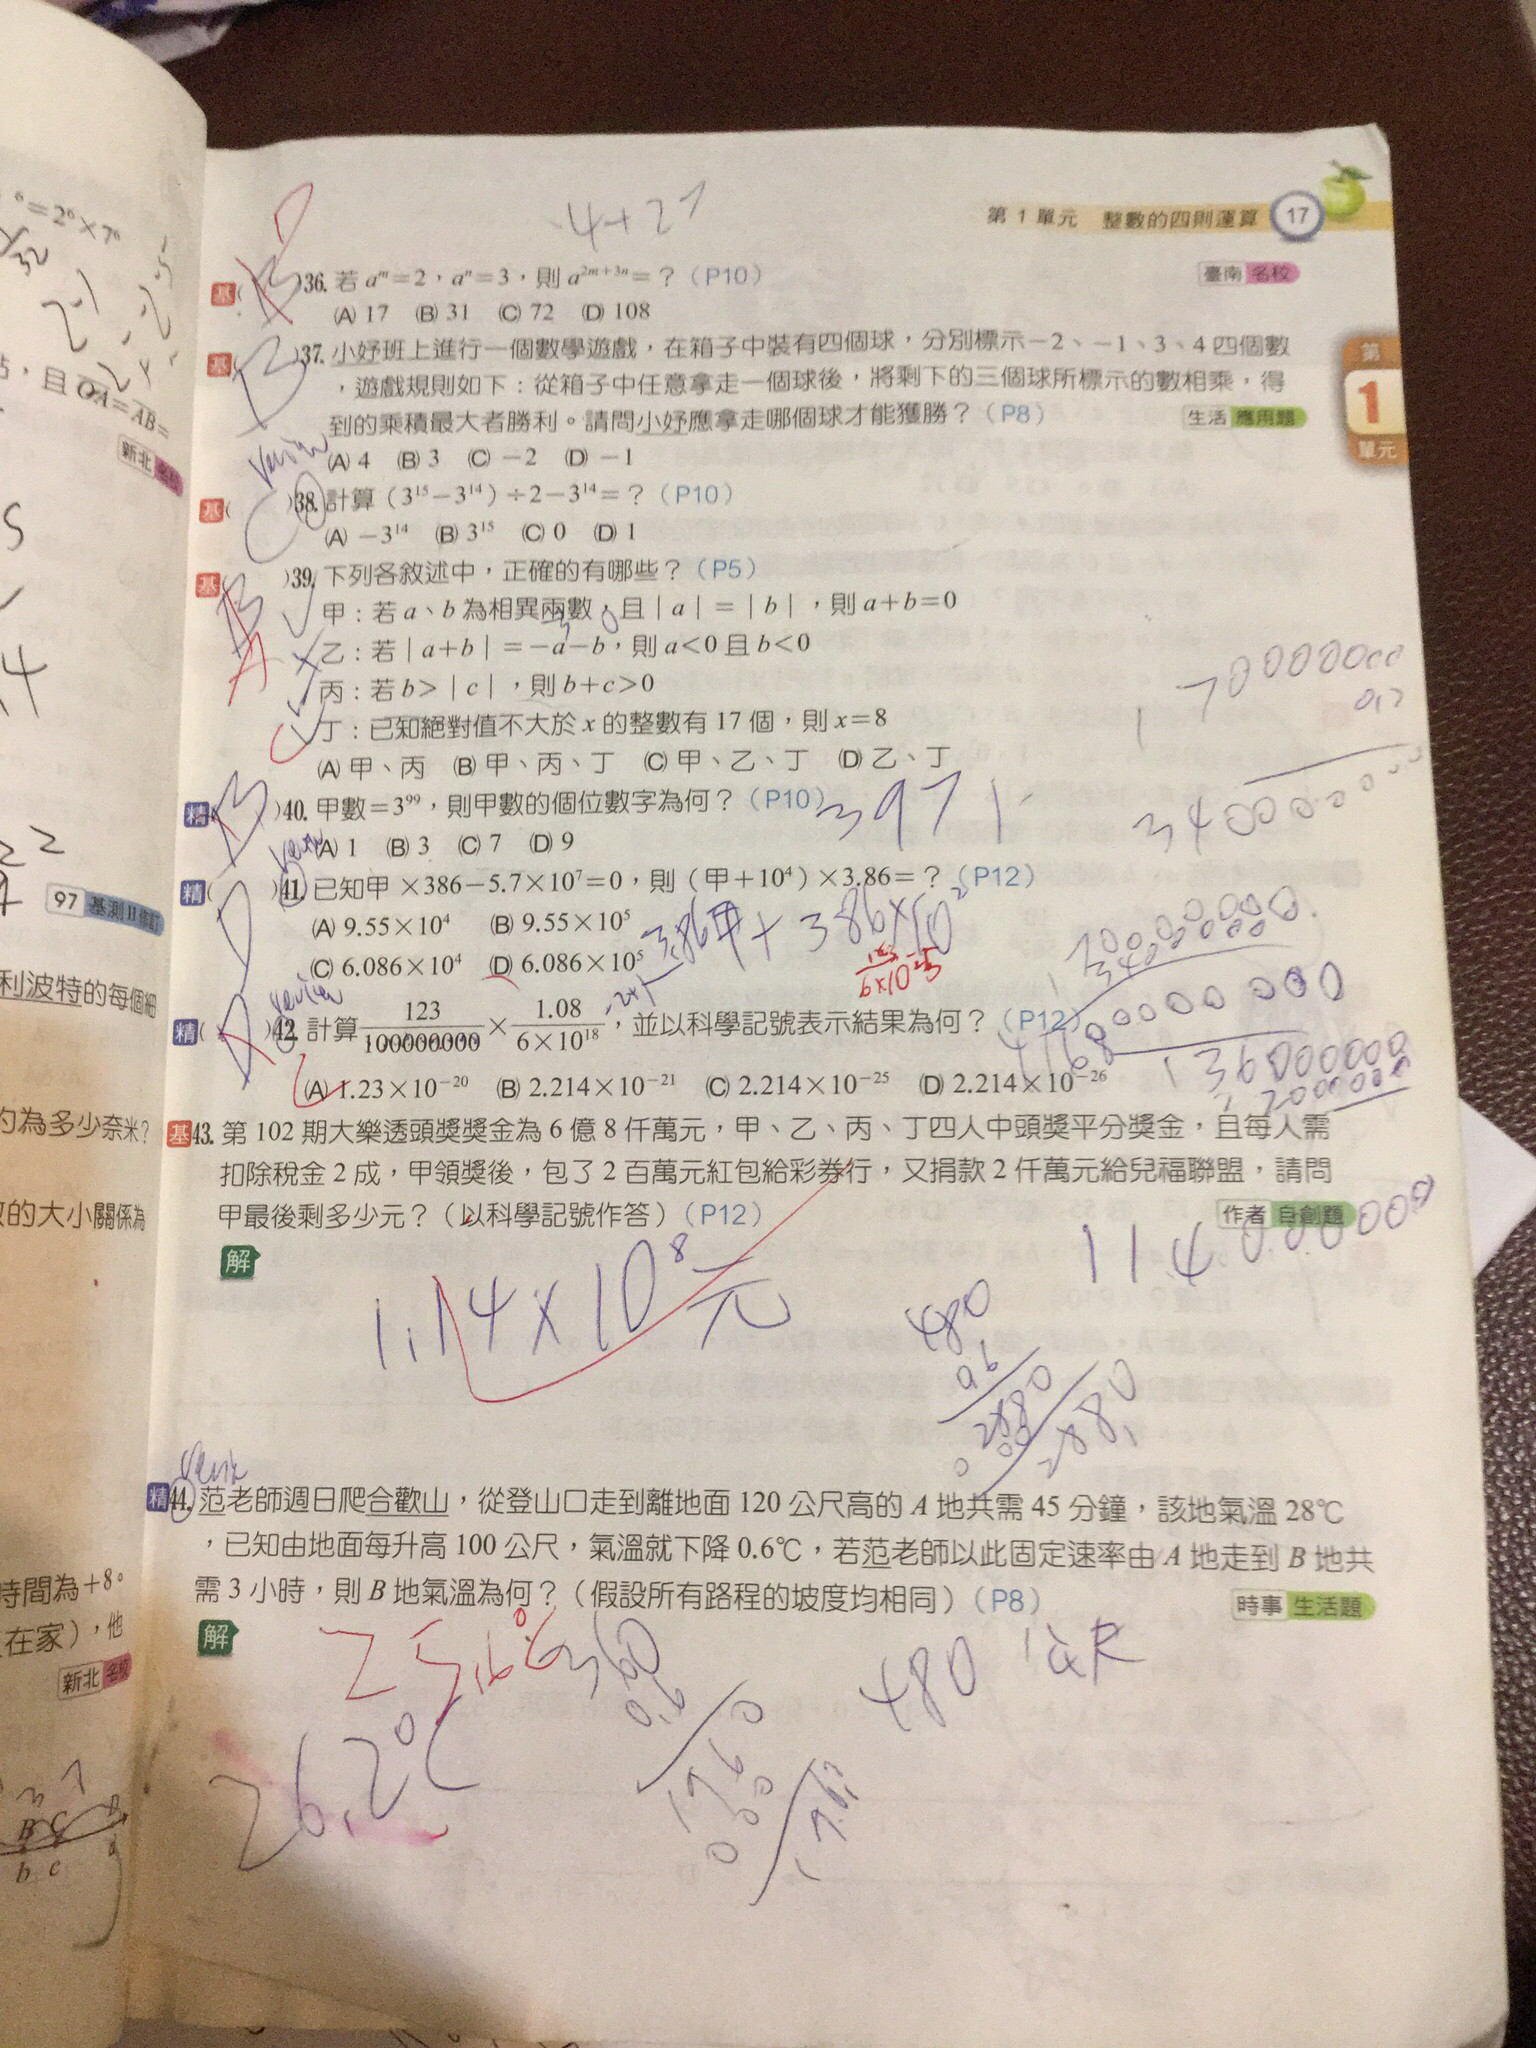 °=2°×7°
32
點,且OA=AB=
新北 名校
97 基測II 修訂
利波特的每個細
約為多少奈米?
數的大小關係為
時間為+8°
在家),他
新北 名校
b c
4+27
第 1 單元 整數的四則運算 17
第
1
單元
基( D )36. 若 aᵐ=2,aⁿ=3,則 a²ᵐ⁺³ⁿ=?(P10) 臺南 名校
(A) 17 (B) 31 (C) 72 (D) 108
基( B )37. 小妤班上進行一個數學遊戲,在箱子中裝有四個球,分別標示-2、-1、3、4 四個數
,遊戲規則如下:從箱子中任意拿走一個球後,將剩下的三個球所標示的數相乘,得
到的乘積最大者勝利。請問小妤應拿走哪個球才能獲勝?(P8) 生活 應用題
(A) 4 (B) 3 (C) -2 (D) -1
review
基( C )38. 計算(3¹⁵-3¹⁴)÷2-3¹⁴=?(P10)
(A) -3¹⁴ (B) 3¹⁵ (C) 0 (D) 1
基( B A )39. 下列各敘述中,正確的有哪些?(P5)
甲:若 a、b 為相異兩數,且|a|=|b|,則 a+b=0
乙:若|a+b|=-a-b,則 a<0 且 b<0
丙:若 b>|c|,則 b+c>0
丁:已知絕對值不大於 x 的整數有 17 個,則 x=8
(A) 甲、丙 (B) 甲、丙、丁 (C) 甲、乙、丁 (D) 乙、丁
精( B )40. 甲數=3⁹⁹,則甲數的個位數字為何?(P10) 3971
(A) 1 (B) 3 (C) 7 (D) 9
精( D )41. 已知甲 ×386-5.7×10⁷=0,則(甲+10⁴)×3.86=?(P12)
(A) 9.55×10⁴ (B) 9.55×10⁵
3.86甲+386×10²
(C) 6.086×10⁴ (D) 6.086×10⁵
123
6×10
review
精( A )42. 計算 123/100000000 × 1.08/6×10¹⁸,並以科學記號表示結果為何?(P12)
(A) 1.23×10⁻²⁰ (B) 2.214×10⁻²¹ (C) 2.214×10⁻²⁵ (D) 2.214×10⁻²⁶
136000000
基43. 第 102 期大樂透頭獎獎金為 6 億 8 仟萬元,甲、乙、丙、丁四人中頭獎平分獎金,且每人需
扣除稅金 2 成,甲領獎後,包了 2 百萬元紅包給彩券行,又捐款 2 仟萬元給兒福聯盟,請問
甲最後剩多少元?(以科學記號作答)(P12) 作者 自創題
114000000
解
1.14×10⁸元
480
0.6
2880
000
288.0
精44. 范老師週日爬合歡山,從登山口走到離地面 120 公尺高的 A 地共需 45 分鐘,該地氣溫 28℃
,已知由地面每升高 100 公尺,氣溫就下降 0.6℃,若范老師以此固定速率由 A 地走到 B 地共
需 3 小時,則 B 地氣溫為何?(假設所有路程的坡度均相同)(P8) 時事 生活題
解
360
0.6
480 公尺
26.2℃